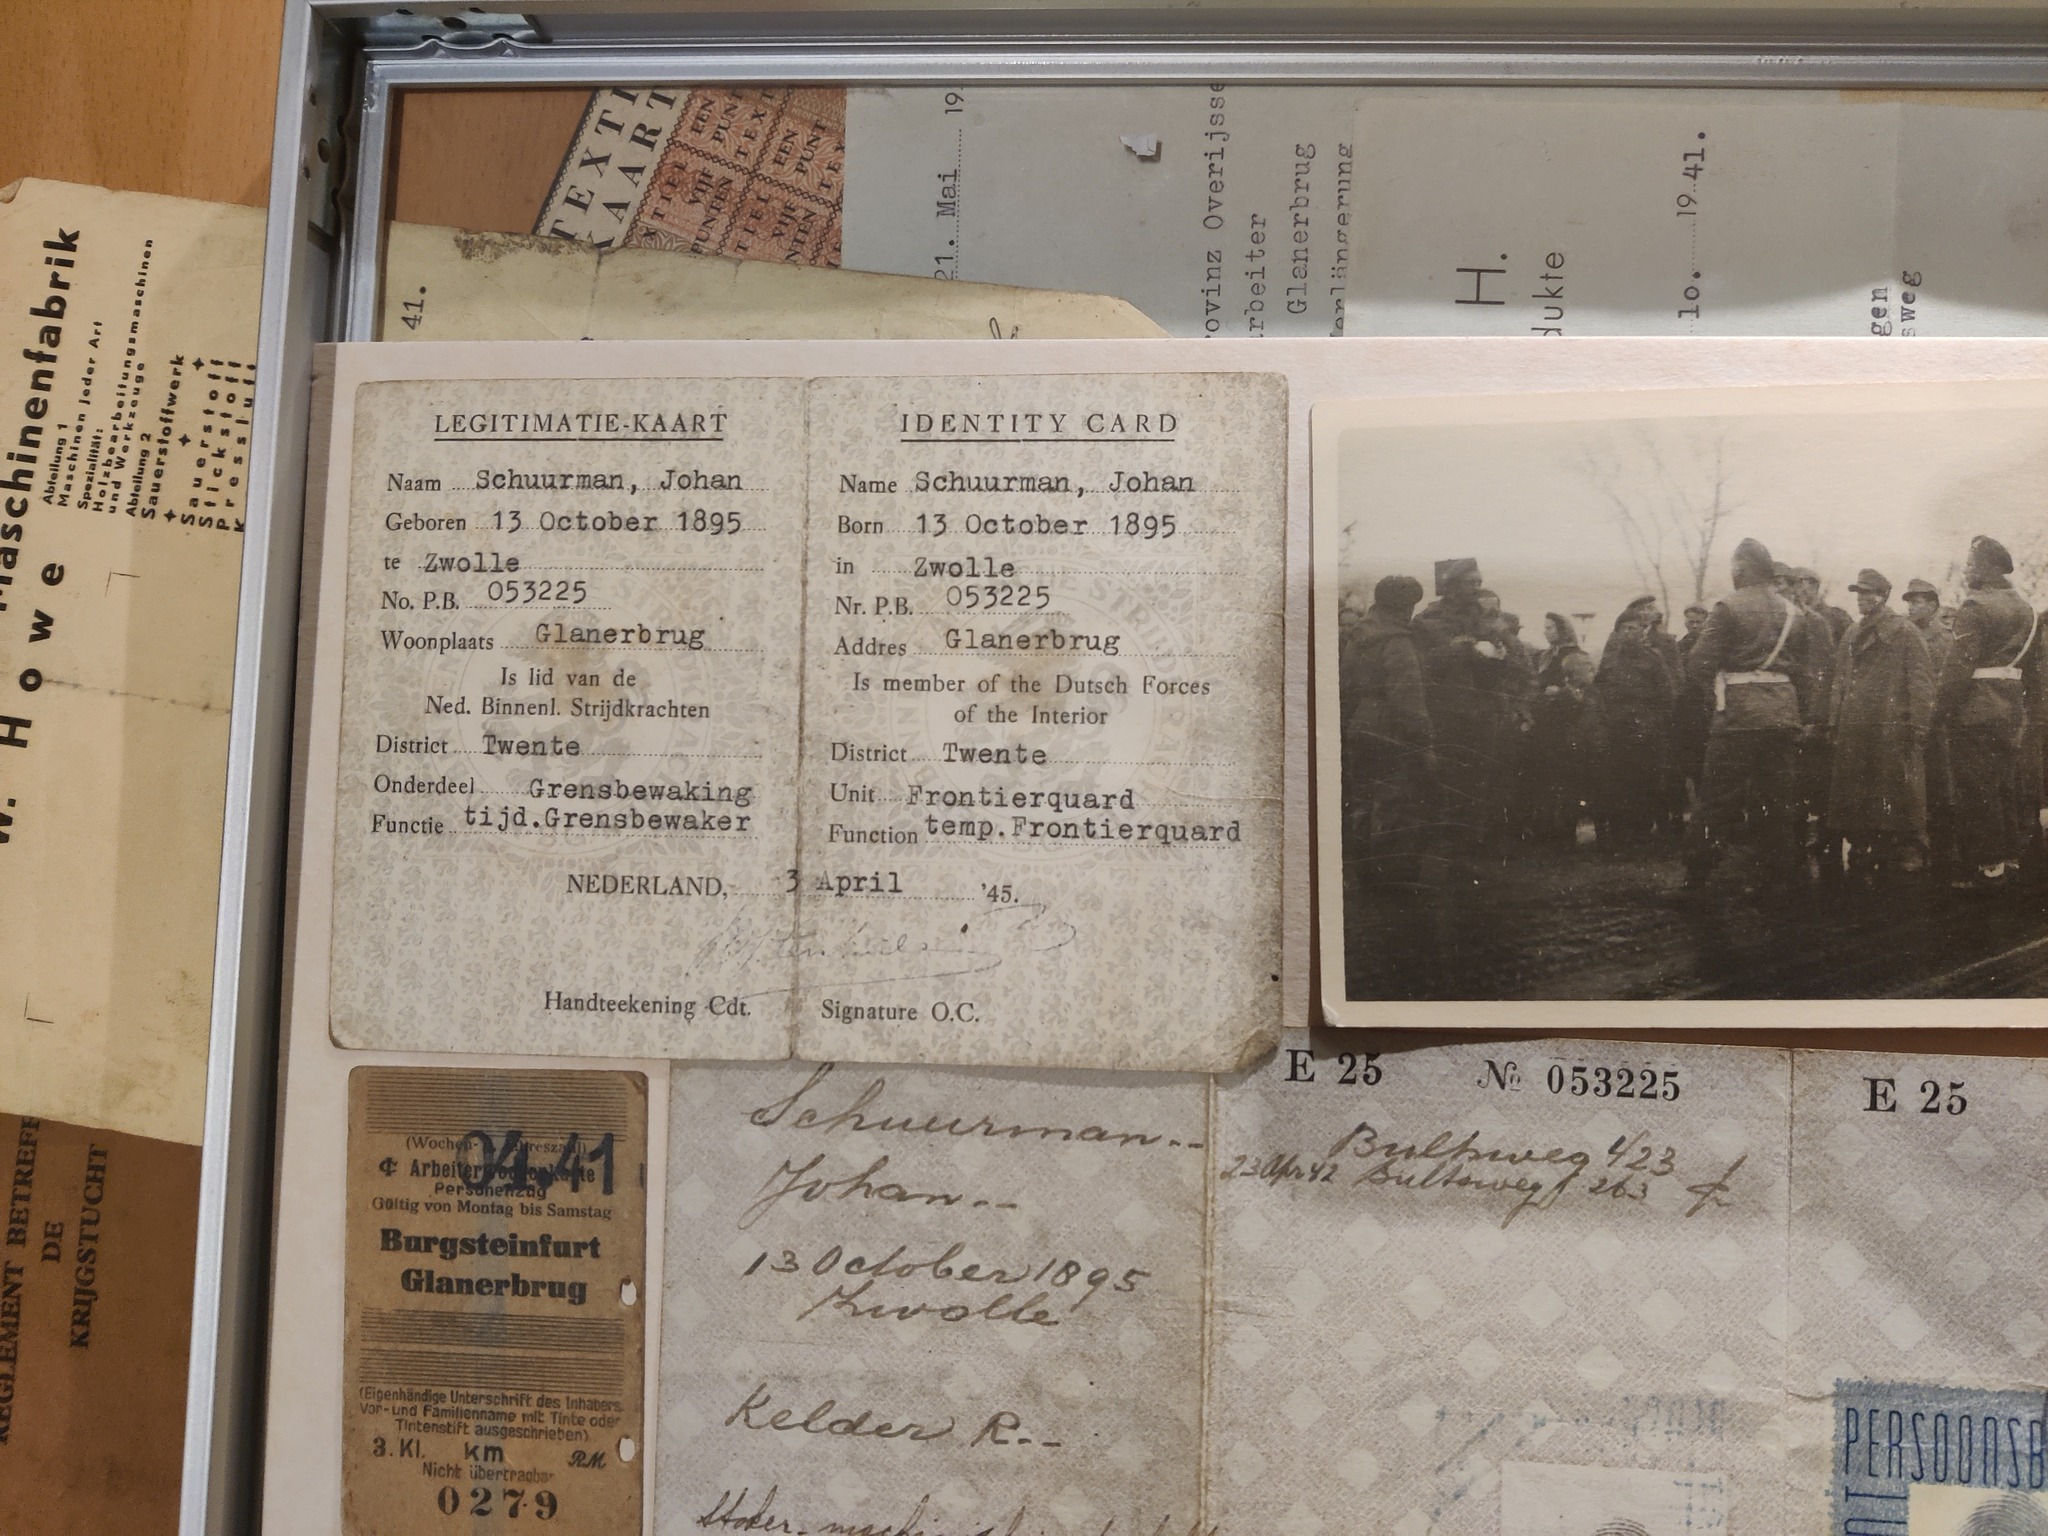 TEXTI
KAART
EEN
PUNT
VIJF
PUNTEN
21. Mai 19
41.
rovinz Overijsse
arbeiter
Glanerbrug
Verlängerung
H.
dukte
lo. 19 41.
gen
sweg
W. Howe Maschinenfabrik
Abteilung 1
Maschinen jeder Art
Spezialität:
Holzbearbeitungsmaschinen
und Werkzeuge
Abteilung 2
Sauerstoffwerk
Sauerstoff
Stickstoff
Pressluft
REGLEMENT BETREFF
DE
KRIJGSTUCHT
LEGITIMATIE-KAART
Naam Schuurman, Johan
Geboren 13 October 1895
te Zwolle
No. P.B. 053225
Woonplaats Glanerbrug
Is lid van de
Ned. Binnenl. Strijdkrachten
District Twente
Onderdeel Grensbewaking
Functie tijd.Grensbewaker
IDENTITY CARD
Name Schuurman, Johan
Born 13 October 1895
in Zwolle
Nr. P.B. 053225
Addres Glanerbrug
Is member of the Dutsch Forces
of the Interior
District Twente
Unit Frontierquard
Function temp.Frontierquard
NEDERLAND, 3 April '45.
Handteekening Cdt. Signature O.C.
04.41
Personenzug
Gültig von Montag bis Samstag
Burgsteinfurt
Glanerbrug
(Eigenhändige Unterschrift des Inhabers
Vor- und Familienname mit Tinte oder
Tintenstift ausgeschrieben)
3. Kl. km RM
Nicht übertragbar
0279
Schuurman--
Johan--
13 October 1895
Zwolle
Kelder R.--
E 25 № 053225
Bultsweg 423
23 Apr 42 Bultsweg 263
E 25
PERSOONSB